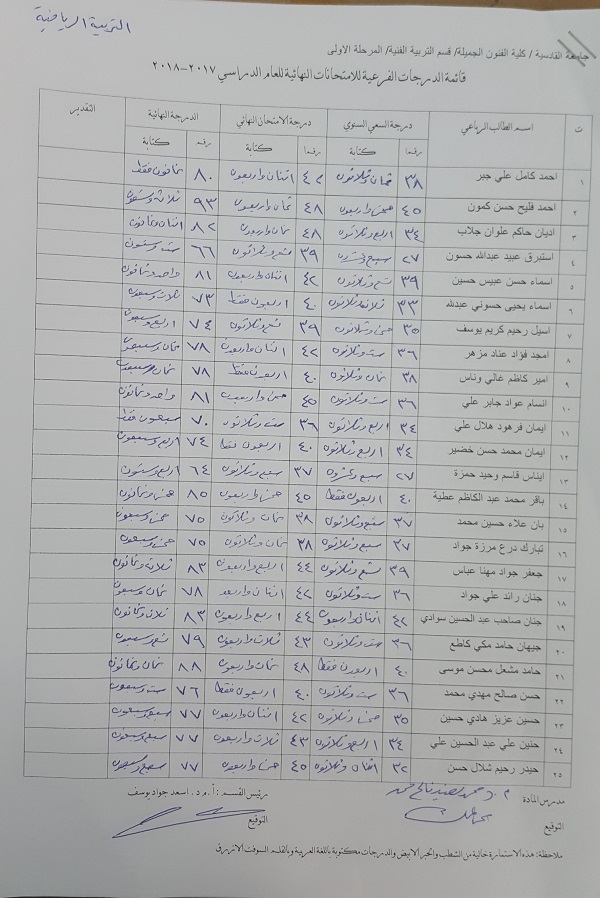 التربية الرياضية
جامعة القادسية / كلية الفنون الجميلة/ قسم التربية الفنية/ المرحلة الاولى
قائمة الدرجات الفرعية للامتحانات النهائية للعام الدراسي ٢٠١٧-٢٠١٨
ت اسم الطالب الرباعي درجة السعي السنوي درجة الامتحان النهائي الدرجة النهائية التقدير
رقما كتابة رقما كتابة رقما كتابة
١ احمد كامل علي جبر ٣٨ ثمان وثلاثون ٤٢ اثنان واربعون ٨٠ ثمانون فقط
٢ احمد فليح حسن كمون ٤٥ خمس واربعون ٤٨ ثمان واربعون ٩٣ ثلاثة وتسعون
٣ اديان حاكم علوان جلاب ٣٤ اربع وثلاثون ٤٨ ثمان واربعون ٨٢ اثنان وثمانون
٤ استبرق عبيد عبدالله حسون ٢٧ سبع وعشرون ٣٩ تسع وثلاثون ٦٦ ست وستون
٥ اسماء حسن عبيس حسين ٣٩ تسع وثلاثون ٤٢ اثنان واربعون ٨١ واحد وثمانون
٦ اسماء يحيى حسوني عبدالله ٣٣ ثلاثة وثلاثون ٤٠ اربعون فقط ٧٣ ثلاث وسبعون
٧ اسيل رحيم كريم يوسف ٣٥ خمس وثلاثون ٣٩ تسع وثلاثون ٧٤ اربع وسبعون
٨ امجد فؤاد عناد مزهر ٣٦ ست وثلاثون ٤٢ اثنان واربعون ٧٨ ثمان وسبعون
٩ امير كاظم غالي وناس ٣٨ ثمان وثلاثون ٤٠ اربعون فقط ٧٨ ثمان وسبعون
١٠ انسام عواد جابر علي ٣٦ ست وثلاثون ٤٥ خمس واربعون ٨١ واحد وثمانون
١١ ايمان فرهود هلال علي ٣٤ اربع وثلاثون ٣٦ ست وثلاثون ٧٠ سبعون فقط
١٢ ايمان محمد حسن خضير ٣٤ اربع وثلاثون ٤٠ اربعون فقط ٧٤ اربع وسبعون
١٣ ايناس قاسم وحيد حمزة ٢٧ سبع وعشرون ٣٧ سبع وثلاثون ٦٤ اربع وستون
١٤ باقر محمد عبد الكاظم عطية ٤٠ اربعون فقط ٤٥ خمس واربعون ٨٥ خمس وثمانون
١٥ بان علاء حسين محمد ٣٧ سبع وثلاثون ٣٨ ثمان وثلاثون ٧٥ خمس وسبعون
١٦ تبارك درع مرزة جواد ٣٧ سبع وثلاثون ٣٨ ثمان وثلاثون ٧٥ خمس وسبعون
١٧ جعفر جواد مهنا عباس ٣٩ تسع وثلاثون ٤٤ اربع واربعون ٨٣ ثلاث وثمانون
١٨ جنان رائد علي جواد ٣٦ ست وثلاثون ٤٢ اثنان واربعون ٧٨ ثمان وسبعون
١٩ جنان صاحب عبد الحسين سوادي ٤٢ اثنان واربعون ٤٤ اربع واربعون ٨٣ ثلاث وثمانون
٢٠ جيهان حامد مكي كاطع ٣٦ ست وثلاثون ٤٣ ثلاث واربعون ٧٩ تسع وسبعون
٢١ حامد مشعل محسن موسى ٤٠ اربعون فقط ٤٨ ثمان واربعون ٨٨ ثمان وثمانون
٢٢ حسن صالح مهدي محمد ٣٦ ست وثلاثون ٤٠ اربعون فقط ٧٦ ست وسبعون
٢٣ حسين عزيز هادي حسين ٣٥ خمس وثلاثون ٤٢ اثنان واربعون ٧٧ سبع وسبعون
٢٤ حنين علي عبد الحسين علي ٣٤ اربع وثلاثون ٤٣ ثلاث واربعون ٧٧ سبع وسبعون
٢٥ حيدر رحيم شلال حسن ٣٢ اثنان وثلاثون ٤٥ خمس واربعون ٧٧ سبع وسبعون
مدرس المادة رئيس القسم : أ.م.د. اسعد جواد يوسف
التوقيع التوقيع
ملاحظة: هذه الاستمارة خالية من الشطب والحبر الابيض والدرجات مكتوبة باللغة العربية وبالقلم السوفت الازرق